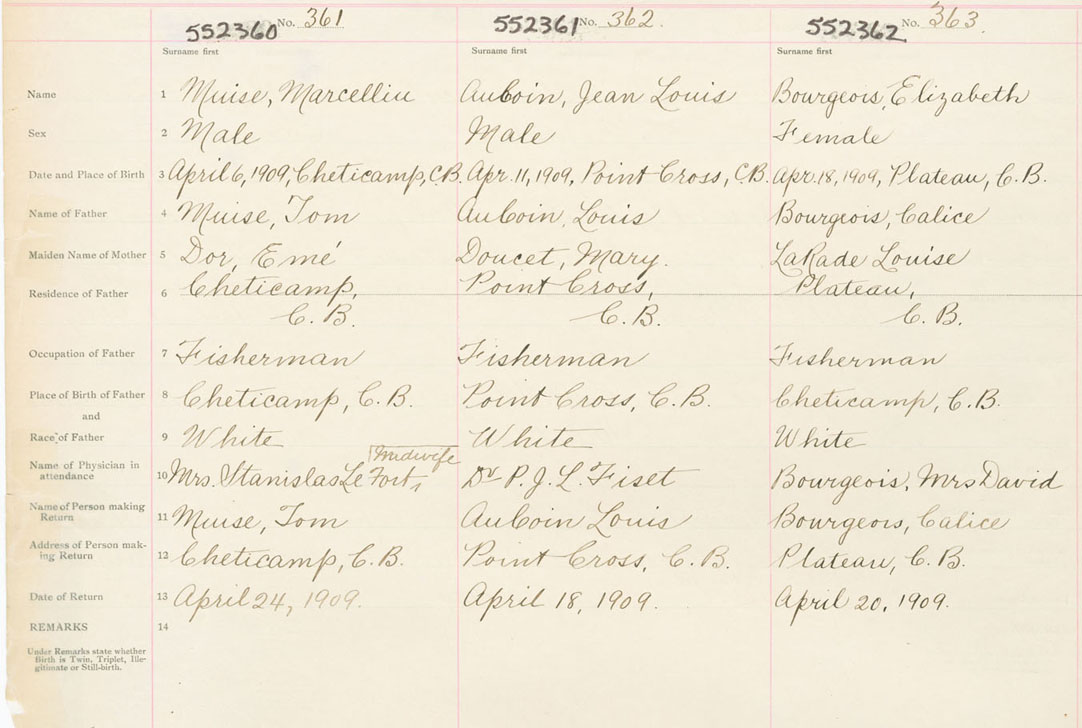 552360 No. 361 552361 No. 362. 552362 No. 363.
Surname first Surname first Surname first
Name 1 Muise, Marcellin AuCoin, Jean Louis Bourgeois, Elizabeth
Sex 2 Male Male Female
Date and Place of Birth 3 April 6, 1909, Cheticamp, C.B. Apr. 11, 1909, Point Cross, C.B. Apr. 18, 1909, Plateau, C.B.
Name of Father 4 Muise, Tom AuCoin, Louis Bourgeois, Calice
Maiden Name of Mother 5 Dor, Emé Doucet, Mary. LaRade Louise
Residence of Father 6 Cheticamp, Point Cross, Plateau,
C. B. C. B. C. B.
Occupation of Father 7 Fisherman Fisherman Fisherman
Place of Birth of Father 8 Cheticamp, C.B. Point Cross, C.B. Cheticamp, C.B.
and
Race of Father 9 White White White
Midwife
Name of Physician in
attendance 10 Mrs. Stanislas Le Fort, Dr P. J. L. Fiset Bourgeois, Mrs David
Name of Person making
Return 11 Muise, Tom AuCoin Louis Bourgeois, Calice
Address of Person mak-
ing Return 12 Cheticamp, C.B. Point Cross, C.B. Plateau, C.B.
Date of Return 13 April 24, 1909. April 18, 1909. April 20, 1909.
REMARKS 14
Under Remarks state whether
Birth is Twin, Triplet, Ille-
gitimate or Still-birth.